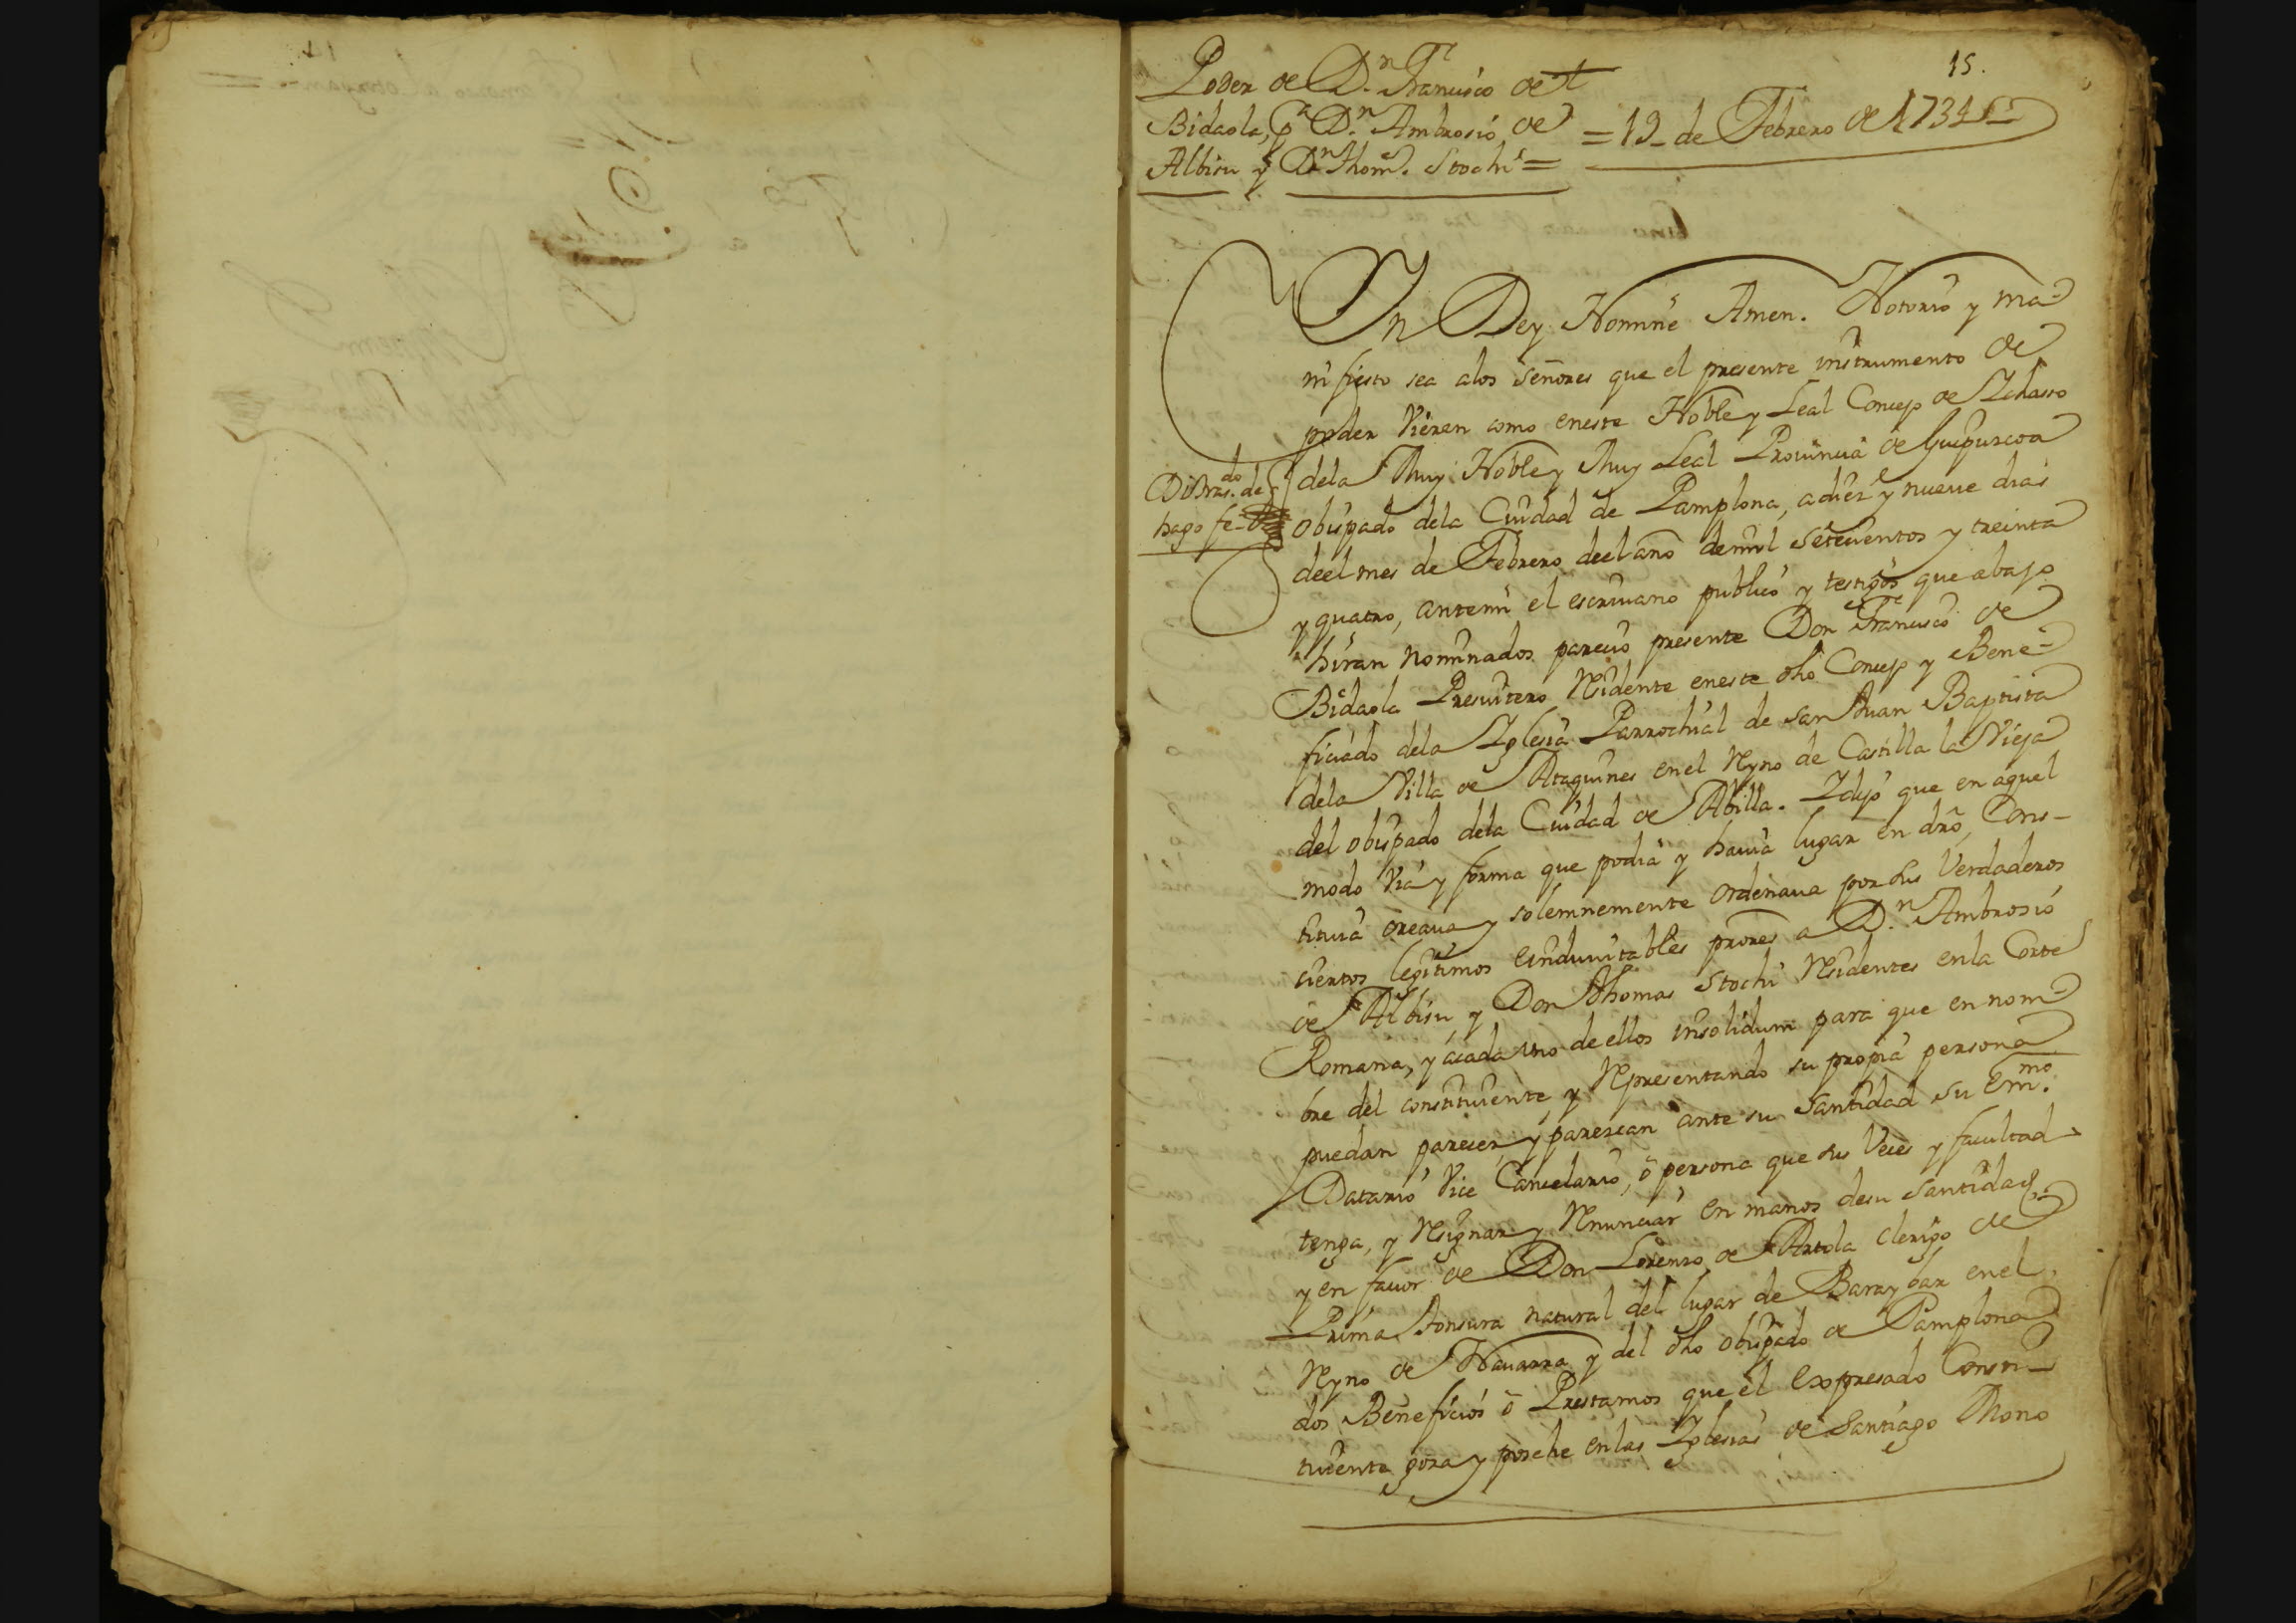 15.
Poder de D.n Fran.co de
Bidaola, p.a D.n Ambrosio de
Albisu y D.n Thom.s Stochi =
= 19 de Febrero de 1734
In Dey Nomine Amen. Notorio y ma=
nifiesto sea alos señores que el presente instrumento de
poder vieren como eneste Noble y Leal Concejo de Ichasso
dela Muy Noble y Muy Leal Provincia de Guipuzcoa
obispado dela Ciudad de Pamplona, a diez y nueve dias
deel mes de Febrero deel año demil setecientos y treinta
y quatro, antemi el escrivano publico y testigos que abajo
hiran nominados parecio presente Don Francisco de
Bidaola Presvitero Residente eneste dho Concejo y Bene=
ficiado dela Iglesia Parrochial de san Juan Baptista
dela Villa de Ataquines enel Reyno de Castilla la Vieja
del obispado dela Ciudad de Abilla. Y dijo que en aquel
modo via y forma que podia y havia lugar en dro, Cons-
tituia creava y solemnemente ordenava por sus Verdaderos
ciertos legitimos eindubitables prores a D.n Ambrosio
de Albisu y Don Thomas Stochi Residentes enla Corte
Romana, y acada uno de ellos insolidum para que en nom=
bre del constituiente y Representando su propia persona
puedan parecer y parezcan ante su Santidad su Em.mo
Datario Vice Cancelario, o persona que sus Veces y facultad
tenga, y Resignar y Renunciar en manos desu Santidad
y en favor de Don Lorenzo de Artola clerigo de
Prima Tonsura natural del lugar de Baraybar enel
Reyno de Navarra y del dho obispado de Pamplona
dos Beneficios o Prestamos que el expresado Consti-
tuiente goza y posehe enlas Iglesias de Santiago Mono
do de
hago fe